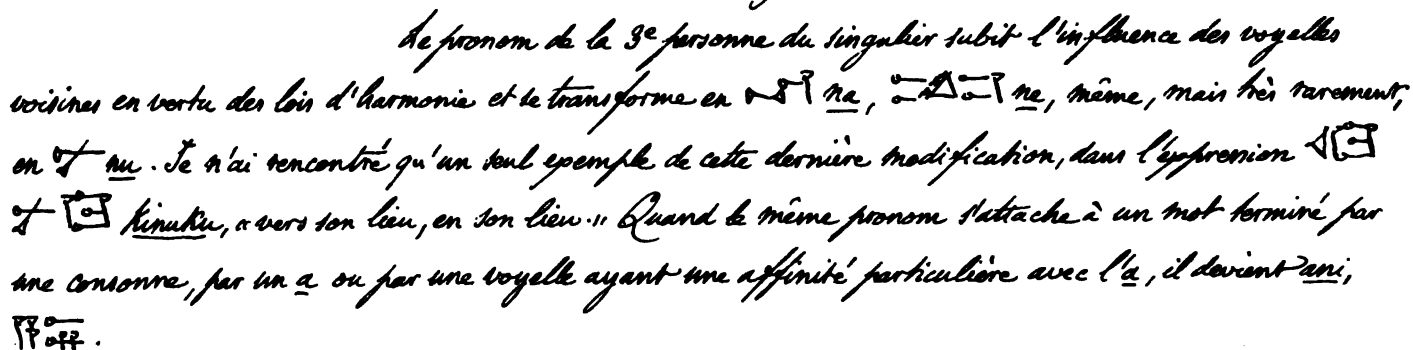 Le pronom de la 3e personne du singulier subit l'influence des voyelles
voisines en vertu des lois d'harmonie et se transforme en na, ne, même, mais très rarement,
en nu. Je n'ai rencontré qu'un seul exemple de cette dernière modification, dans l'expression
kinuku, « vers son lieu, en son lieu ». Quand le même pronom s'attache à un mot terminé par
une consonne, par un a ou par une voyelle ayant une affinité particulière avec l'a, il devient ani,
.